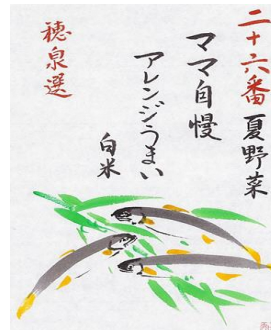 二十六番 夏野菜
ママ自慢
アレンジうまい
白米
穂泉選